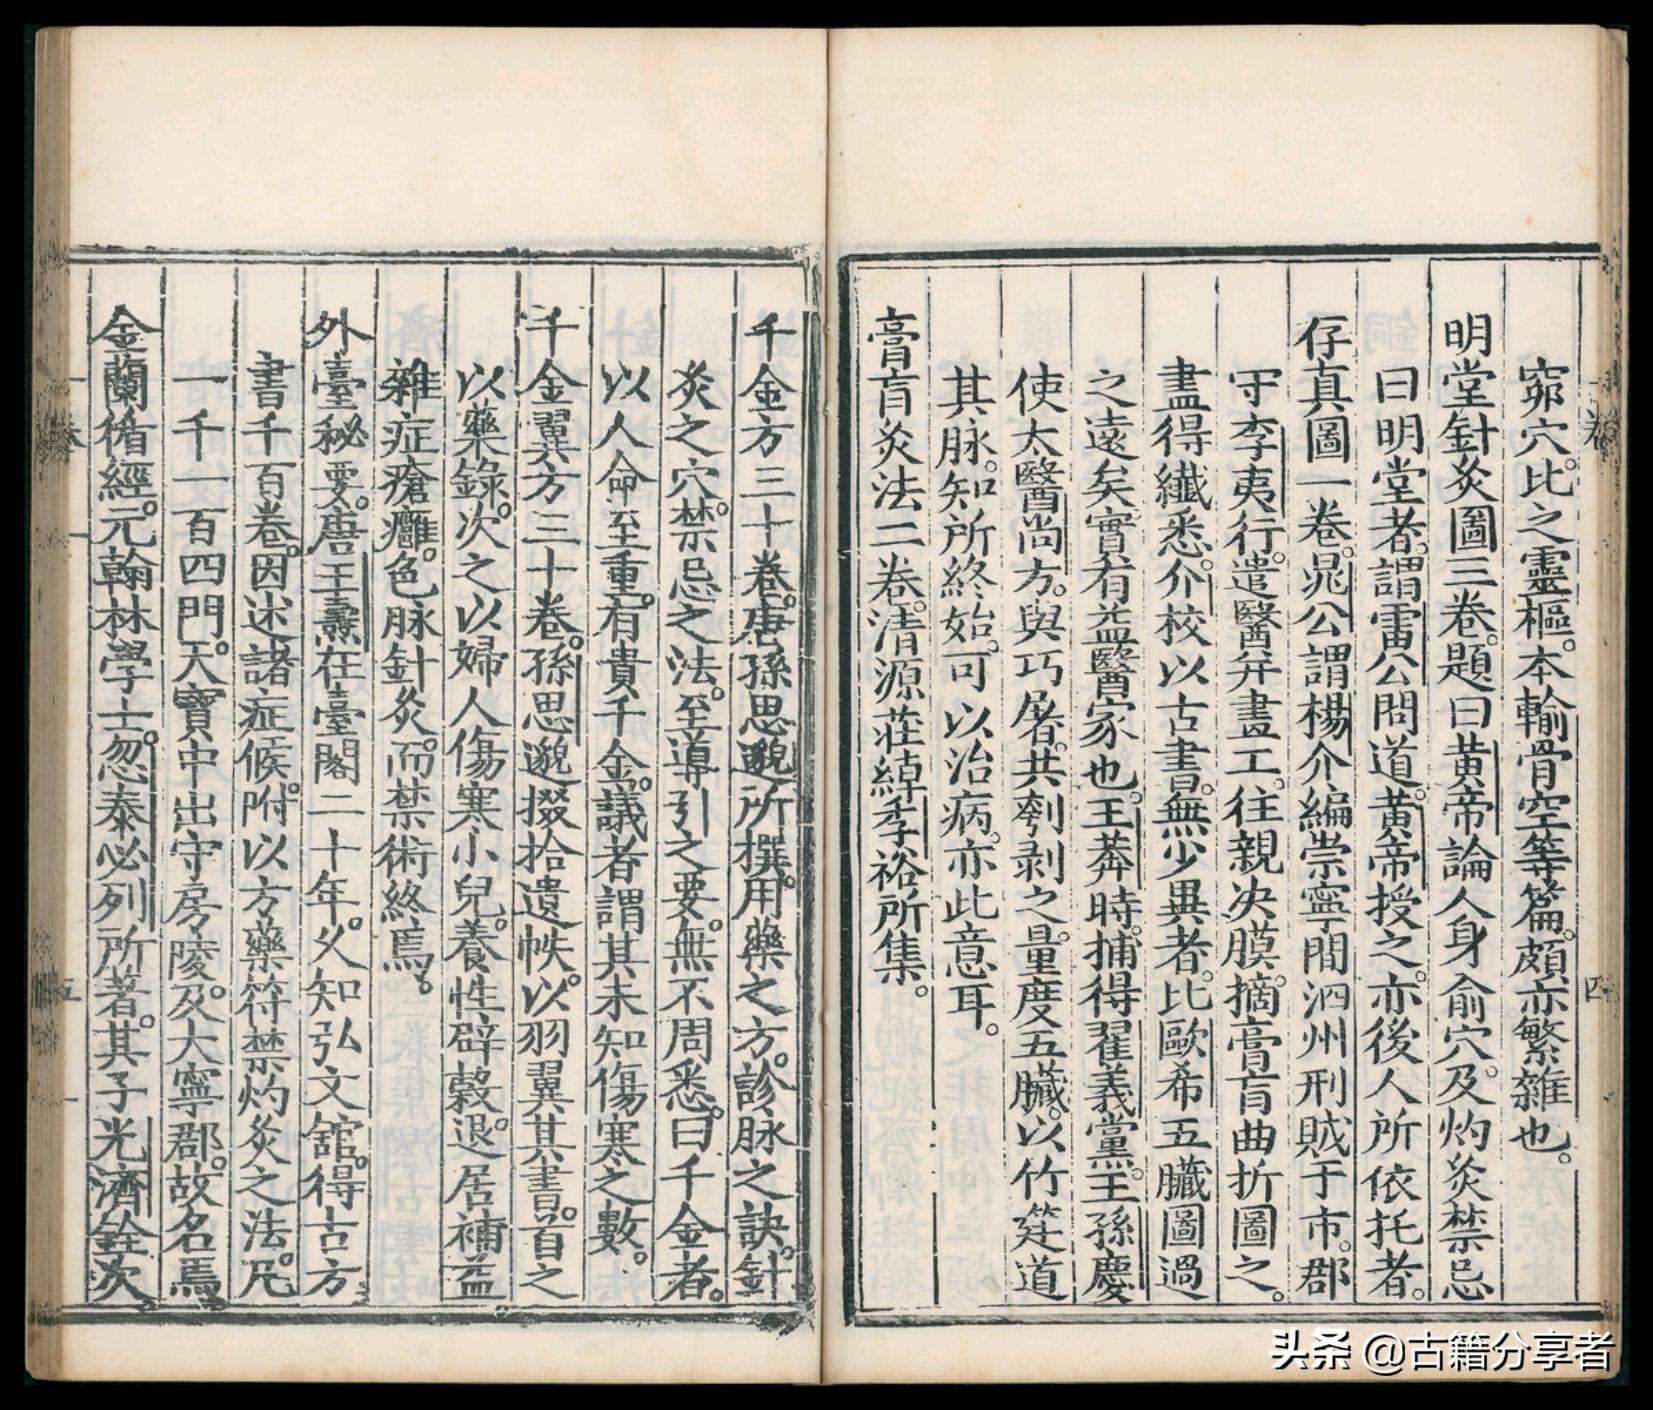 窌穴比之靈樞本輸骨空等篇頗亦繁雜也
明堂針灸圖三卷題曰黃帝論人身俞穴及灼灸禁忌
曰明堂者謂雷公問道黃帝授之亦後人所依托者
存真圖一卷晁公謂楊介編崇寧間泗州刑賊于市郡
守李夷行遣醫并畫工往親决膜摘膏肓曲折圖之
盡得纖悉介校以古書無少異者比歐希五臟圖過
之遠矣實有益醫家也王莽時捕得翟義黨王孫慶
使太醫尚方與巧屠共刳剥之量度五臟以竹筳道
其脉知所終始可以治病亦此意耳
膏肓灸法二卷清源莊綽季裕所集
千金方三十卷唐孫思邈所撰用藥之方診脉之訣針
灸之穴禁忌之法至導引之要無不周悉曰千金者
以人命至重有貴千金議者謂其未知傷寒之數
千金翼方三十卷孫思邈掇拾遺帙以羽翼其書首之
以藥錄次之以婦人傷寒小兒養性辟穀退居補益
雜症瘡癰色脉針灸而禁術終焉
外臺秘要唐王燾在臺閣二十年久知弘文舘得古方
書千百卷因述諸症候附以方藥符禁灼灸之法凡
一千一百四門天寶中出守房陵及大寧郡故名焉
金蘭循經元翰林學士忽泰必列所著其子光濟銓次
卷
四
五
头条 @古籍分享者